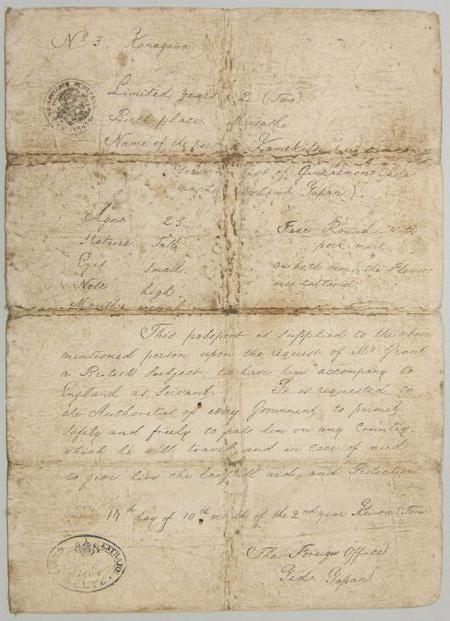 No 3 Kanagawa
Limited years 2 (Two)
Birth place.
Name of the Kamekitse
of Ginzaimon
Japan).
Ages 23.
Stature Tall
Eyes small.
Nose high.
Mouth
Face Round with
pock mark.
on both the Flowers
are tattooed.
This passport is supplied to the above
mentioned person upon the request of Mr Grant
a British Subject, to have him accompany to
England as Servant. It is requested to
the Authorities of every Goverment, to
safely and freely to pass him on any Country,
which he will travel, and in case of need
to give him the aid, and Protection
14th day of 10th of the 2nd year
The Foreign Office
Yedo. Japan